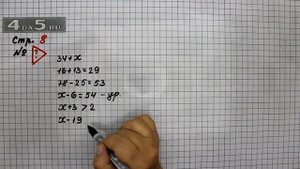 4GDZ.RU
Стр. 8
№8
34+x
16+13=29
78-25=53
x-6=54 - ур.
x+3>2
x-19